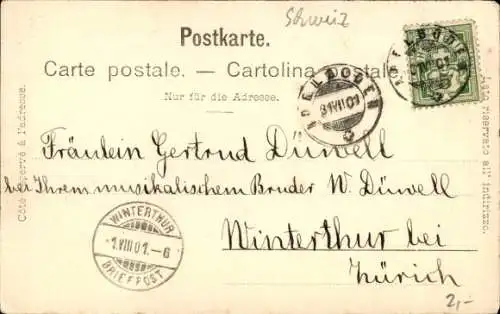 Schweiz
Postkarte.
Carte postale. — Cartolina postale
Nur für die Adresse.
ADELBODEN
ADELBODEN
31.VII.01
Fräulein Gertrud Düwell
bei Ihrem musikalischem Bruder W. Düwell
Winterthur bei
Zürich
WINTERTHUR
1.VIII.01.-6
BRIEFPOST
Côté réservé à l'adresse.
lato riservato all' indirizzo.
2,-